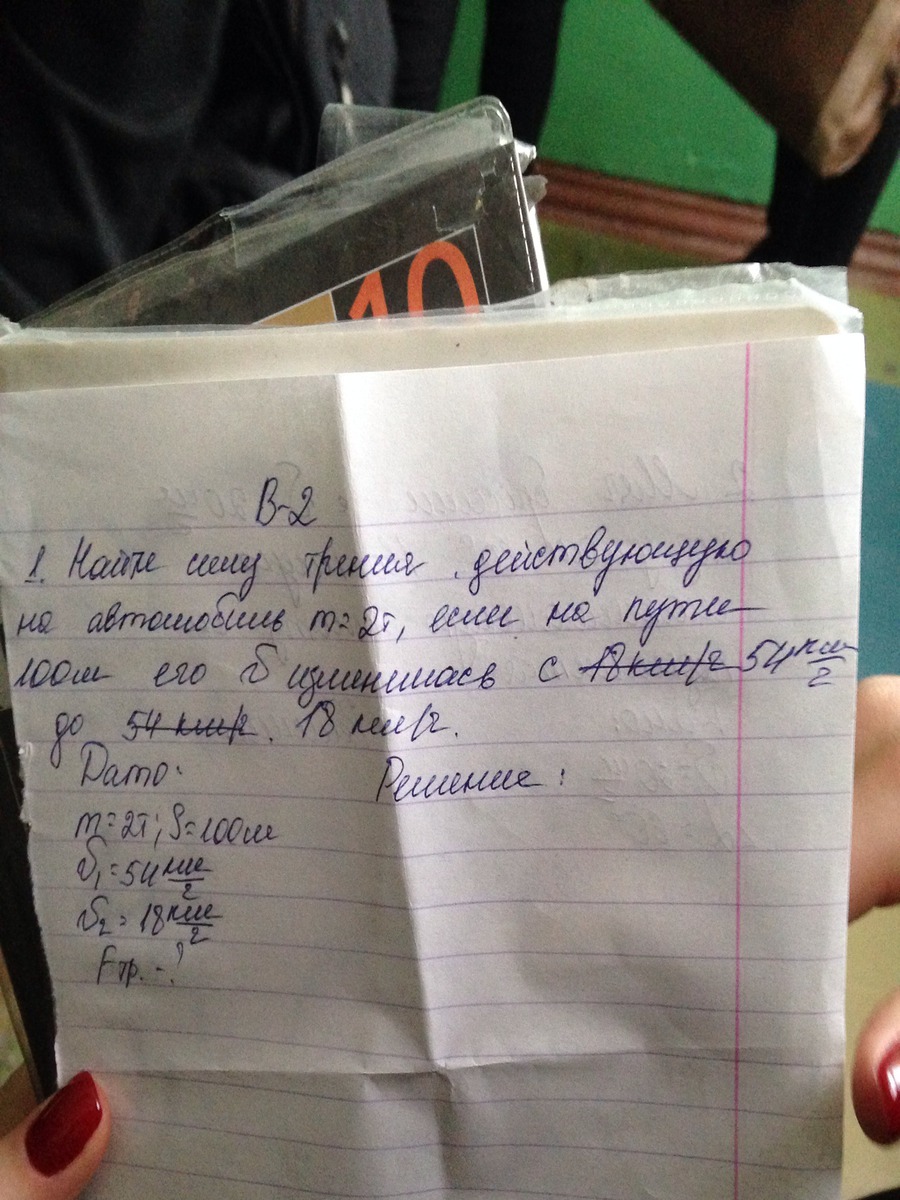 10
В-2
1. Найти силу трения, действующую
на автомобиль m=2т, если на пути
100м его υ изменилась с 18км/ч 54 км/ч
до 54 км/ч. 18 км/ч.
Дано:
Решение:
m=2т; S=100м
υ₁=54 км/ч
υ₂=18 км/ч
Fтр. -?